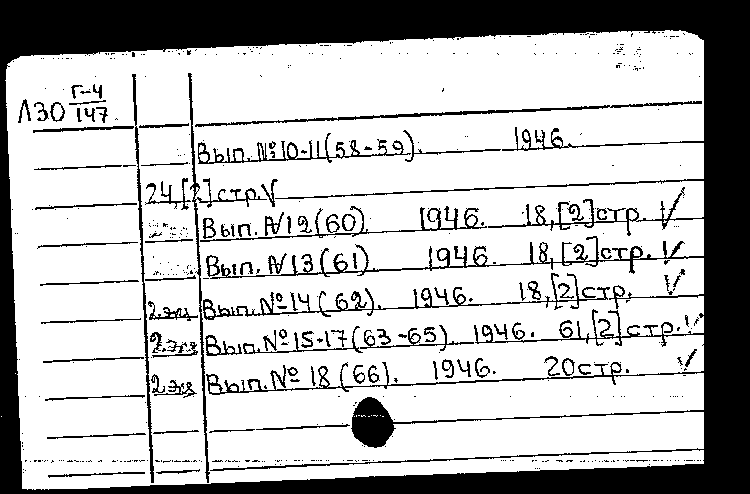 Л30 Г-4/147
Вып. №10-11(58-59). 1946.
24,[2]стр. V
Вып. N12(60) 1946. 18,[2]стр. V
Вып. N13(61). 1946. 18,[2]стр. V
2 экз Вып. №14(62). 1946. 18,[2]стр. V
2 экз Вып. №15-17(63-65). 1946. 61,[2]стр. V
2 экз Вып. № 18(66). 1946. 20стр. V